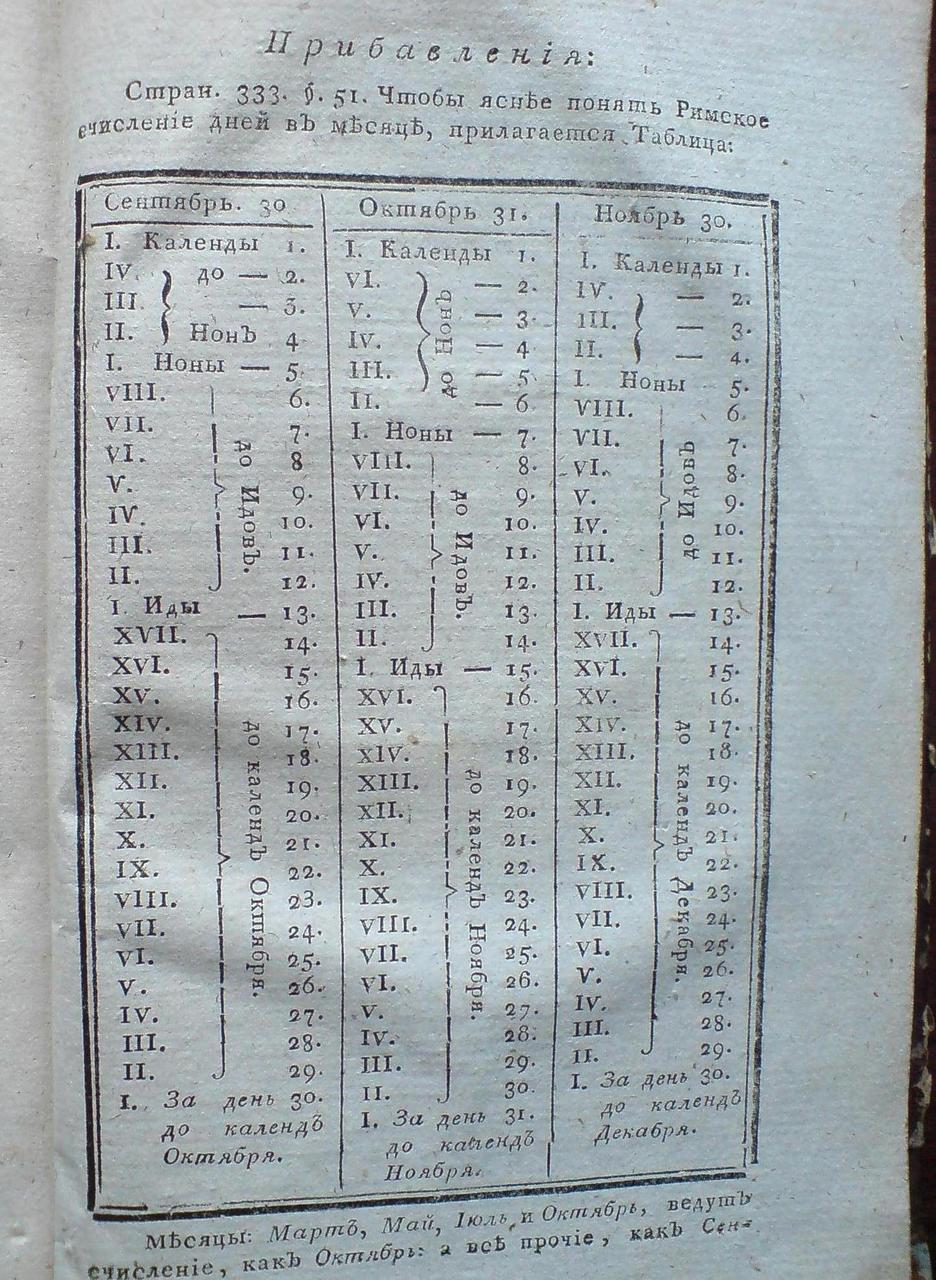 Прибавленія:
Стран. 333. §. 51. Чтобы яснѣе понять Римское
счисленіе дней въ мѣсяцѣ, прилагается Таблица:
Сентябрь. 30
I. Календы 1.
IV. до — 2.
III. — 3.
II. Нонъ 4
I. Ноны — 5.
VIII. 6.
VII. 7.
VI. 8
V. 9.
IV. 10.
III. 11.
II. 12.
до Идовъ.
I. Иды — 13.
XVII. 14.
XVI. 15.
XV. 16.
XIV. 17.
XIII. 18.
XII. 19.
XI. 20.
X. 21.
IX. 22.
VIII. 23.
VII. 24.
VI. 25.
V. 26.
IV. 27.
III. 28.
II. 29.
до календъ Октября.
I. За день 30.
до календъ
Октября.
Октябрь 31.
I. Календы 1.
VI. — 2.
V. — 3.
IV. — 4
III. — 5.
II. — 6
до Нонъ
I. Ноны — 7.
VIII. 8.
VII. 9.
VI. 10.
V. 11.
IV. 12.
III. 13.
II. 14.
до Идовъ.
I. Иды — 15.
XVI. 16.
XV. 17.
XIV. 18.
XIII. 19.
XII. 20.
XI. 21.
X. 22.
IX. 23.
VIII. 24.
VII. 25.
VI. 26.
V. 27.
IV. 28.
III. 29.
II. 30.
до календъ Ноября.
I. За день 31.
до календъ
Ноября.
Ноябрь 30.
I. Календы 1.
IV. — 2.
III. — 3.
II. — 4.
I. Ноны 5.
VIII. 6.
VII. 7.
VI. 8.
V. 9.
IV. 10.
III. 11.
II. 12.
до Идовъ
I. Иды — 13.
XVII. 14.
XVI. 15.
XV. 16.
XIV. 17.
XIII. 18.
XII. 19.
XI. 20.
X. 21.
IX. 22.
VIII. 23.
VII. 24.
VI. 25.
V. 26.
IV. 27.
III. 28.
II. 29.
до календъ Декабря.
I. За день 30.
до календъ
Декабря.
Мѣсяцы: Мартъ, Май, Іюль, и Октябрь, ведутъ
счисленіе, какъ Октябрь: а всѣ прочіе, какъ Сен-